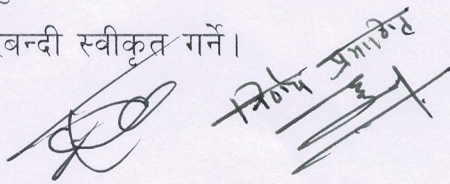 बन्दी स्वीकृत गर्ने।
निर्णय प्रमाणित